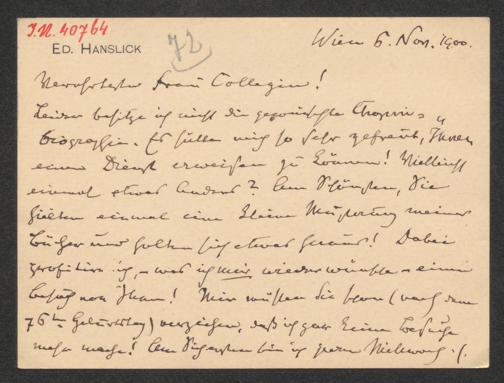 I.N. 40764
ED. HANSLICK
72
Wien 6. Nov. 1900.
Verehrteste Frau Collegin!
Leider besitze ich nicht die gewünschte Chopin-
biografie. Es hätte mich so sehr gefreut, Ihnen
einen Dienst erweisen zu können! Vielleicht
einmal etwas Anderes? Am Schönsten, Sie
hielten einmal eine kleine Musterung meiner
Bücher und holten sich etwas heraus! Dabei
profitire ich, – was ich mir wieder wünschte – einen
Besuch von Ihnen! Mir müssen Sie schon (nach dem
76ten Geburtstag) verzeihen, daß ich gar keine Besuche
mehr mache! Am Sichersten bin ich